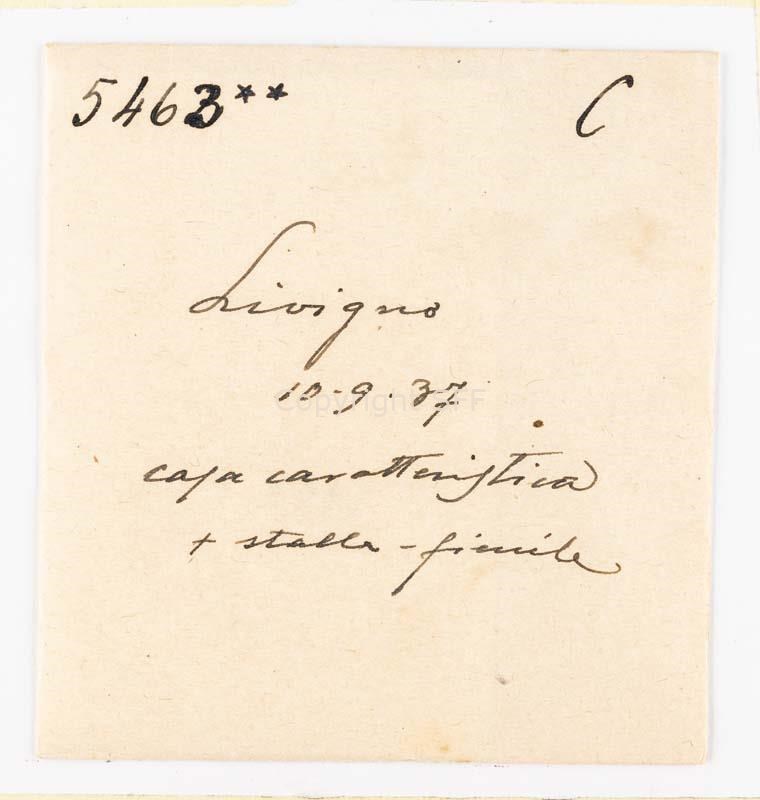 5463** C
Livigno
10-9.37
casa caratteristica
+ stalla - fienile